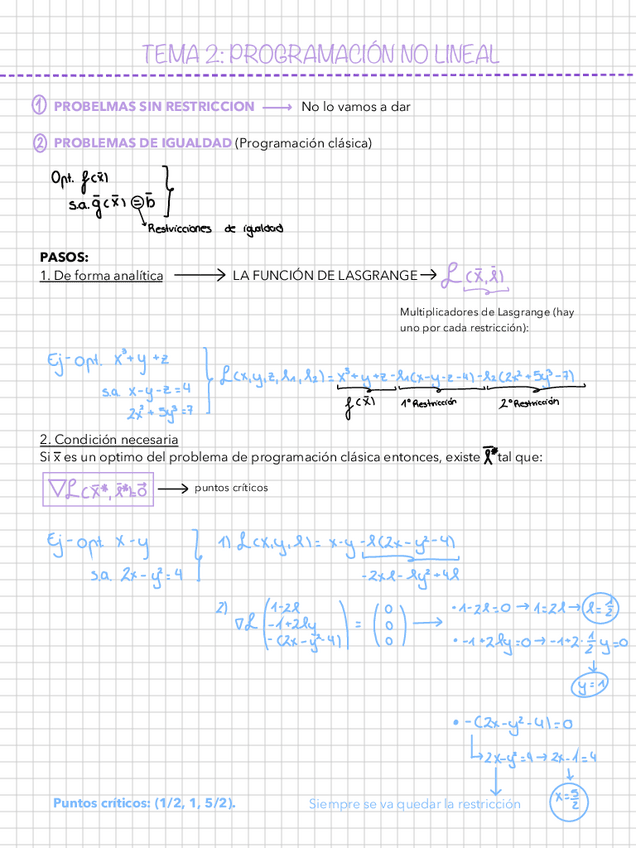 TEMA 2: PROGRAMACIÓN NO LINEAL
① PROBELMAS SIN RESTRICCION → No lo vamos a dar
② PROBLEMAS DE IGUALDAD (Programación clásica)
Opt. f(x̄)
s.a. ḡ(x̄) = b̄
Restricciones de igualdad
PASOS:
1. De forma analítica → LA FUNCIÓN DE LASGRANGE → L(x̄, l̄)
Multiplicadores de Lasgrange (hay
uno por cada restricción):
Ej- opt. x³+y+z
s.a. x-y-z=4
2x²+5y³=7
L(x,y,z,l₁,l₂)=x³+y+z-l₁(x-y-z-4)-l₂(2x²+5y³-7)
f(x̄) 1º Restricción 2º Restricción
2. Condición necesaria
Si x̄ es un optimo del problema de programación clásica entonces, existe l̄* tal que:
∇L(x̄*, l̄*)=0̄ → puntos críticos
Ej- opt x-y
s.a. 2x-y²=4
1) L(x,y,l)= x-y-l(2x-y²-4)
-2xl-ly²+4l
2) ∇L (1-2l
-1+2ly
-(2x-y²-4)) = (0
0
0) →
• 1-2l=0 → 1=2l → l=1/2
• -1+2ly=0 → -1+2·1/2 y=0
y=1
• -(2x-y²-4)=0
2x-y²=4 → 2x-1=4
x=5/2
Puntos críticos: (1/2, 1, 5/2).
Siempre se va quedar la restricción